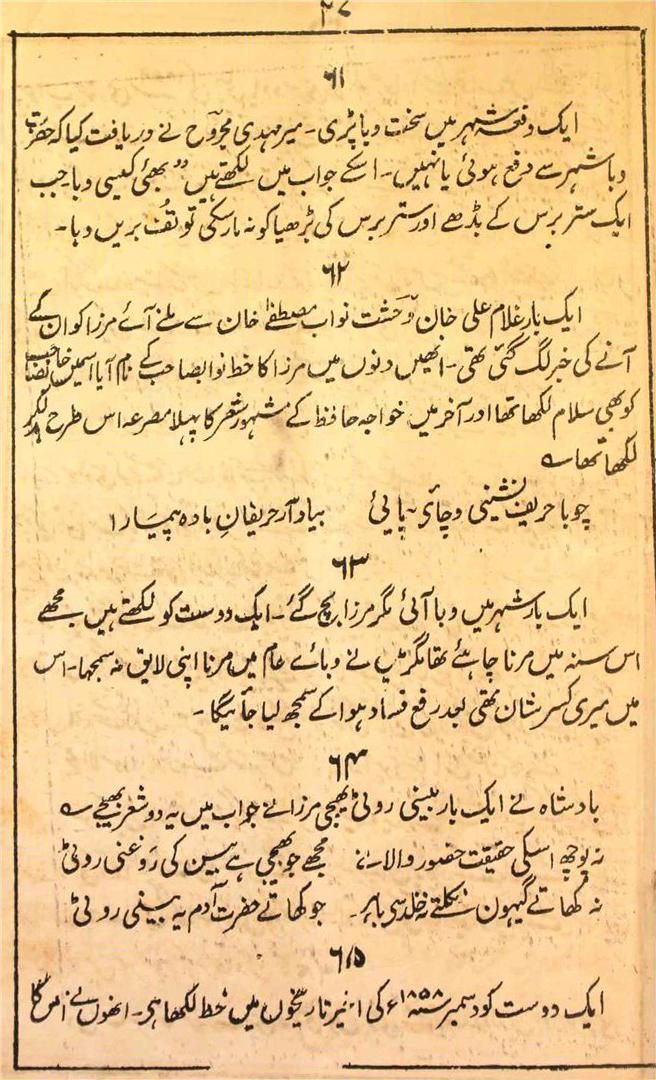 ۳۷
۶۱
ایک دفعہ شہر میں سخت وبا پڑی۔ میر مہدی مجروح نے دریافت کیا کہ حضرت
وبا شہر سے دفع ہوئی یا نہیں۔ اسکے جواب میں لکھتے ہیں "بھئی کیسی وبا۔ جب
ایک ستر برس کے بڈھے اور ستر برس کی بڑھیا کو نہ مار سکی تو تُف بریں وبا۔
۶۲
ایک بار غلام علی خان وحشت نواب مصطفےٰ خان سے ملنے آئے مرزا کو ان کے
آنے کی خبر لگ گئی تھی۔ انھیں دنوں میں مرزا کا خط نوابصاحب کے نام آیا اسمیں خانصاحب
کو بھی سلام لکھا تھا اور آخر میں خواجہ حافظ کے مشہور شعر کا پہلا مصرعہ اس طرح
لکھا تھا ؎
چو با حریف نشینی و چائے پیائی بیاد آر حریفانِ بادہ پیمارا
۶۳
ایک بار شہر میں وبا آئی مگر مرزا بچ گئے۔ ایک دوست کو لکھتے ہیں مجھے
اس سنہ میں مرنا چاہئے تھا مگر میں نے وبائے عام میں مرنا اپنی لایق نہ سمجھا۔ اس
میں میری کسر شان تھی بعد رفع فساد ہوا کے سمجھ لیا جائیگا۔
۶۴
بادشاہ نے ایک بار بیسنی روٹی بھیجی مرزا نے جواب میں یہ دو شعر بھیجے ؎
نہ پوچھ اسکی حقیقت حضور والا نے مجھے جو بھیجی ہے بیسن کی روغنی روٹی
نہ کھاتے گیہون نکلتے نہ خلد سی باہر۔ جو کھاتے حضرت آدم یہ بیسنی روٹی
۶۵
ایک دوست کو دسمبر سنہ ۱۸۵۸ء کی اخیر تاریخوں میں خط لکھا ہی۔ انھوں نے اس کا